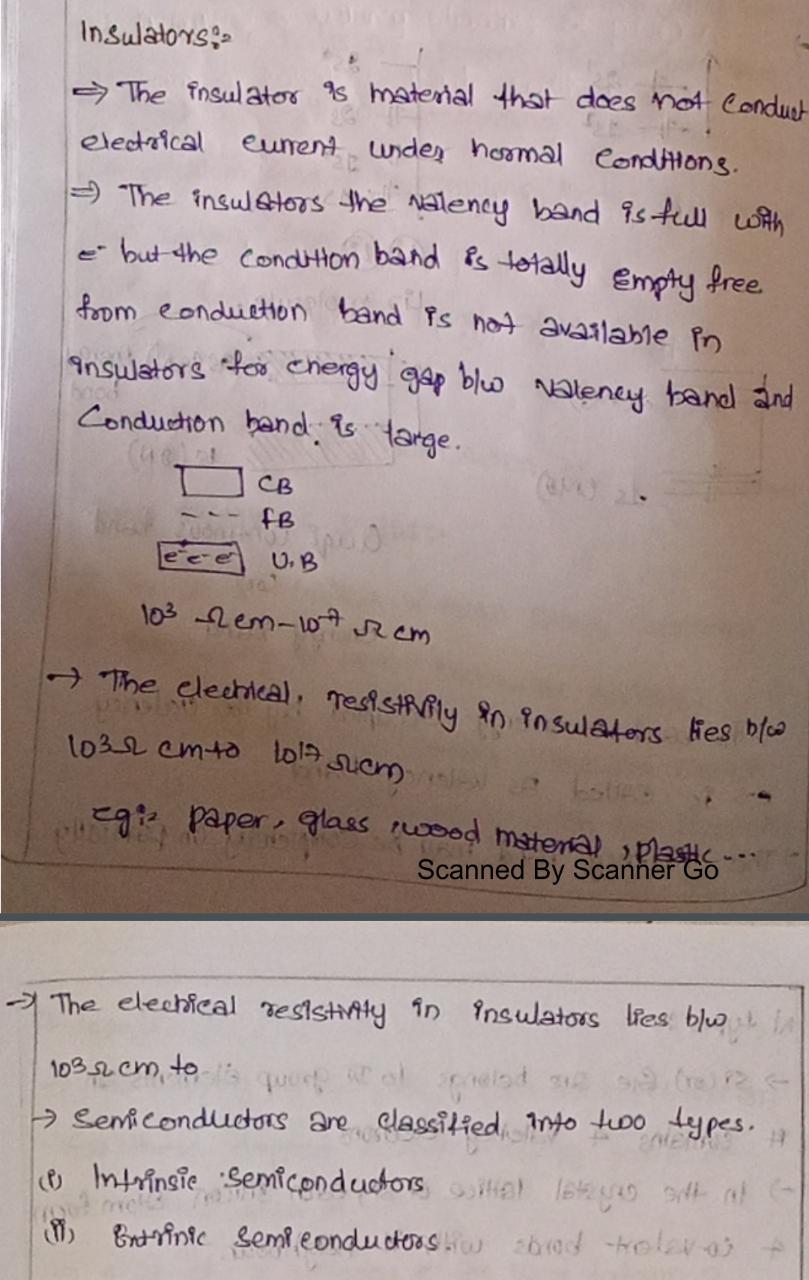 Insulators:-
⇒ The insulator is material that does not conduct
electrical current under normal conditions.
⇒ The insulators the valency band is full with
e⁻ but the condition band is totally empty free
from conduction band is not available in
insulators for energy gap b/w valency band and
Conduction band. is large.
CB
FB
e⁻ e⁻ e⁻ V.B
10³ Ω cm - 10⁻⁷ Ω cm
→ The electrical, resistivily in insulators lies b/w
10³Ω cm to 10¹⁷ Ω cm
Eg:- paper, glass, wood material, plastic...
Scanned By Scanner Go
→ The electrical resistivity in insulators lies b/w
10³Ω cm, to
→ Semiconductors are classified into two types.
(i) Intrinsic Semiconductors
(ii) Extrinic Semiconductors.